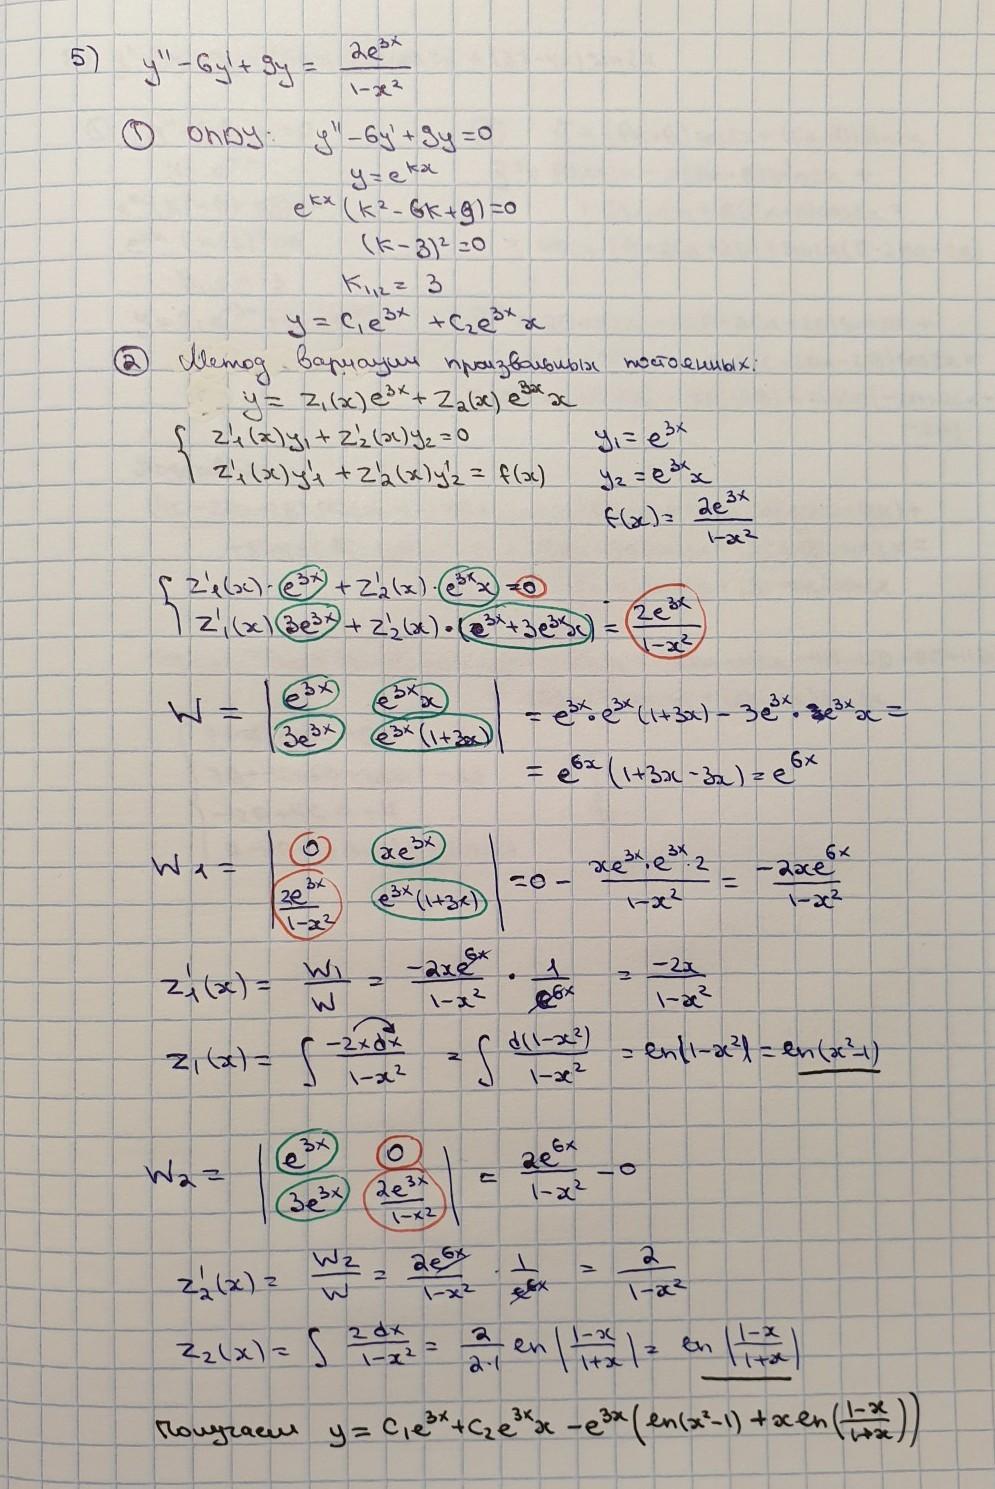 5) y'' - 6y' + 9y = 2e^{3x}/(1-x²)
① ОЛДУ: y'' - 6y' + 9y = 0
y = e^{kx}
e^{kx}(k² - 6k + 9) = 0
(k - 3)² = 0
k₁,₂ = 3
y = C₁e^{3x} + C₂e^{3x}x
② Метод вариации произвольных постоянных:
y = z₁(x)e^{3x} + z₂(x)e^{3x}x
{ z₁'(x)y₁ + z₂'(x)y₂ = 0    y₁ = e^{3x}
z₁'(x)y₁' + z₂'(x)y₂' = f(x)    y₂ = e^{3x}x
f(x) = 2e^{3x}/(1-x²)
{ z₁'(x)·e^{3x} + z₂'(x)·e^{3x}x = 0
z₁'(x) 3e^{3x} + z₂'(x)·(e^{3x} + 3e^{3x}x) = 2e^{3x}/(1-x²)
W = | e^{3x}  e^{3x}x ; 3e^{3x}  e^{3x}(1+3x) | = e^{3x}·e^{3x}(1+3x) - 3e^{3x}·e^{3x}x =
= e^{6x}(1+3x-3x) = e^{6x}
W₁ = | 0  xe^{3x} ; 2e^{3x}/(1-x²)  e^{3x}(1+3x) | = 0 - xe^{3x}·e^{3x}·2/(1-x²) = -2xe^{6x}/(1-x²)
z₁'(x) = W₁/W = -2xe^{6x}/(1-x²) · 1/e^{6x} = -2x/(1-x²)
z₁(x) = ∫ -2xdx/(1-x²) = ∫ d(1-x²)/(1-x²) = ln|1-x²| = ln(x²-1)
W₂ = | e^{3x}  0 ; 3e^{3x}  2e^{3x}/(1-x²) | = 2e^{6x}/(1-x²) - 0
z₂'(x) = W₂/W = 2e^{6x}/(1-x²) · 1/e^{6x} = 2/(1-x²)
z₂(x) = ∫ 2dx/(1-x²) = 2/(2·1) ln|(1-x)/(1+x)| = ln|(1-x)/(1+x)|
Получаем y = C₁e^{3x} + C₂e^{3x}x - e^{3x}(ln(x²-1) + x ln((1-x)/(1+x)))